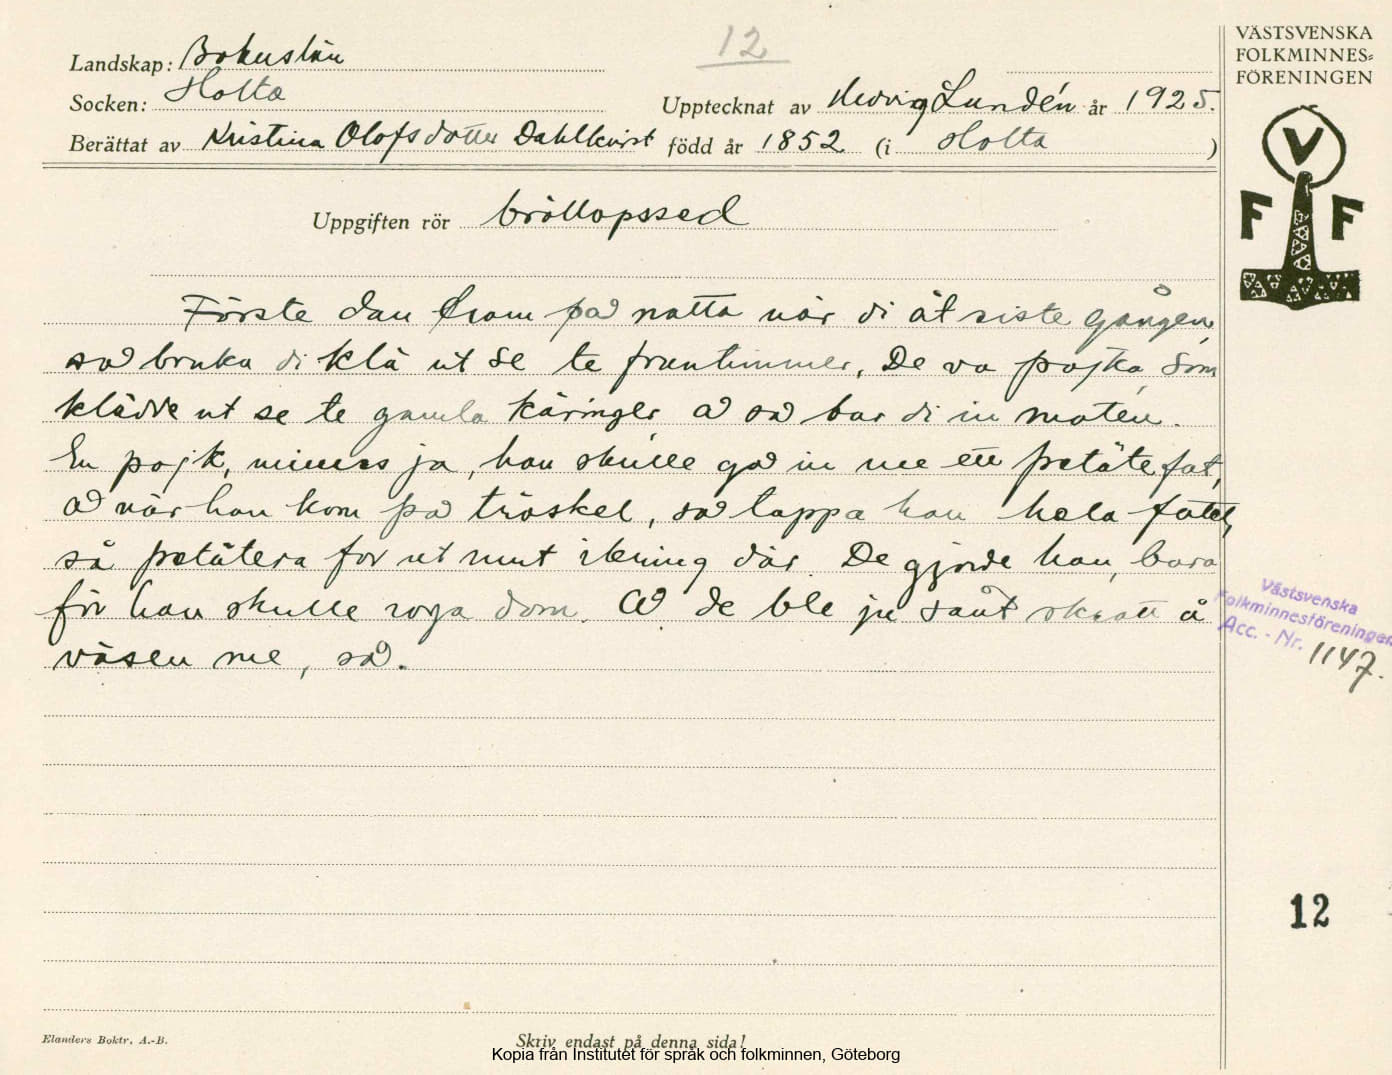 12
VÄSTSVENSKA
FOLKMINNES=
FÖRENINGEN
Landskap: Bohuslän
Socken: Holta
Upptecknat av Hedvig Lundén år 1925.
Berättat av Kristina Olofsdotter Dahlkvist född år 1852 (i Holta )
V
F F
Uppgiften rör bröllopssed
Förste dan fram på natta når di åt siste gången,
så bruka di klä ut se te fruntimmer. De va pojka, som
klädde ut se te gamla käringer, å så bar di in maten.
En pojk, minnes ja, han skulle gå in me ett potätefat,
å når han kom på tröskel, så tappa han hela fatet,
så potätera for ut runt ikring där. De gjorde han, bara
för han skulle roga dom. Å de ble ju sånt skratt å
väsen me, så.
Västsvenska
Folkminnesföreningen
Acc. - Nr. 1147.
12
Elanders Boktr. A.-B.
Skriv endast på denna sida!
Kopia från Institutet för språk och folkminnen, Göteborg